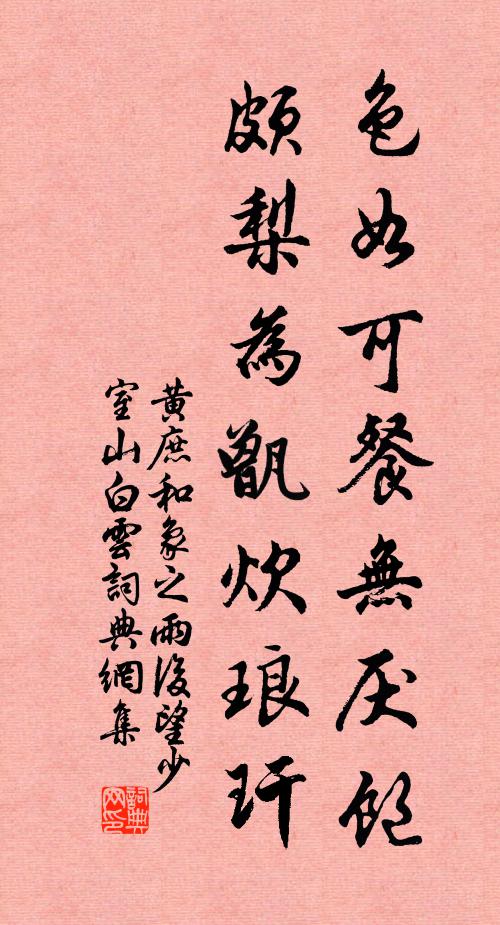 色如可餐無厌飽
頗梨為甑炊琅玕
黃庶和象之雨後望少
室山白雲詞典網集
詞典网印